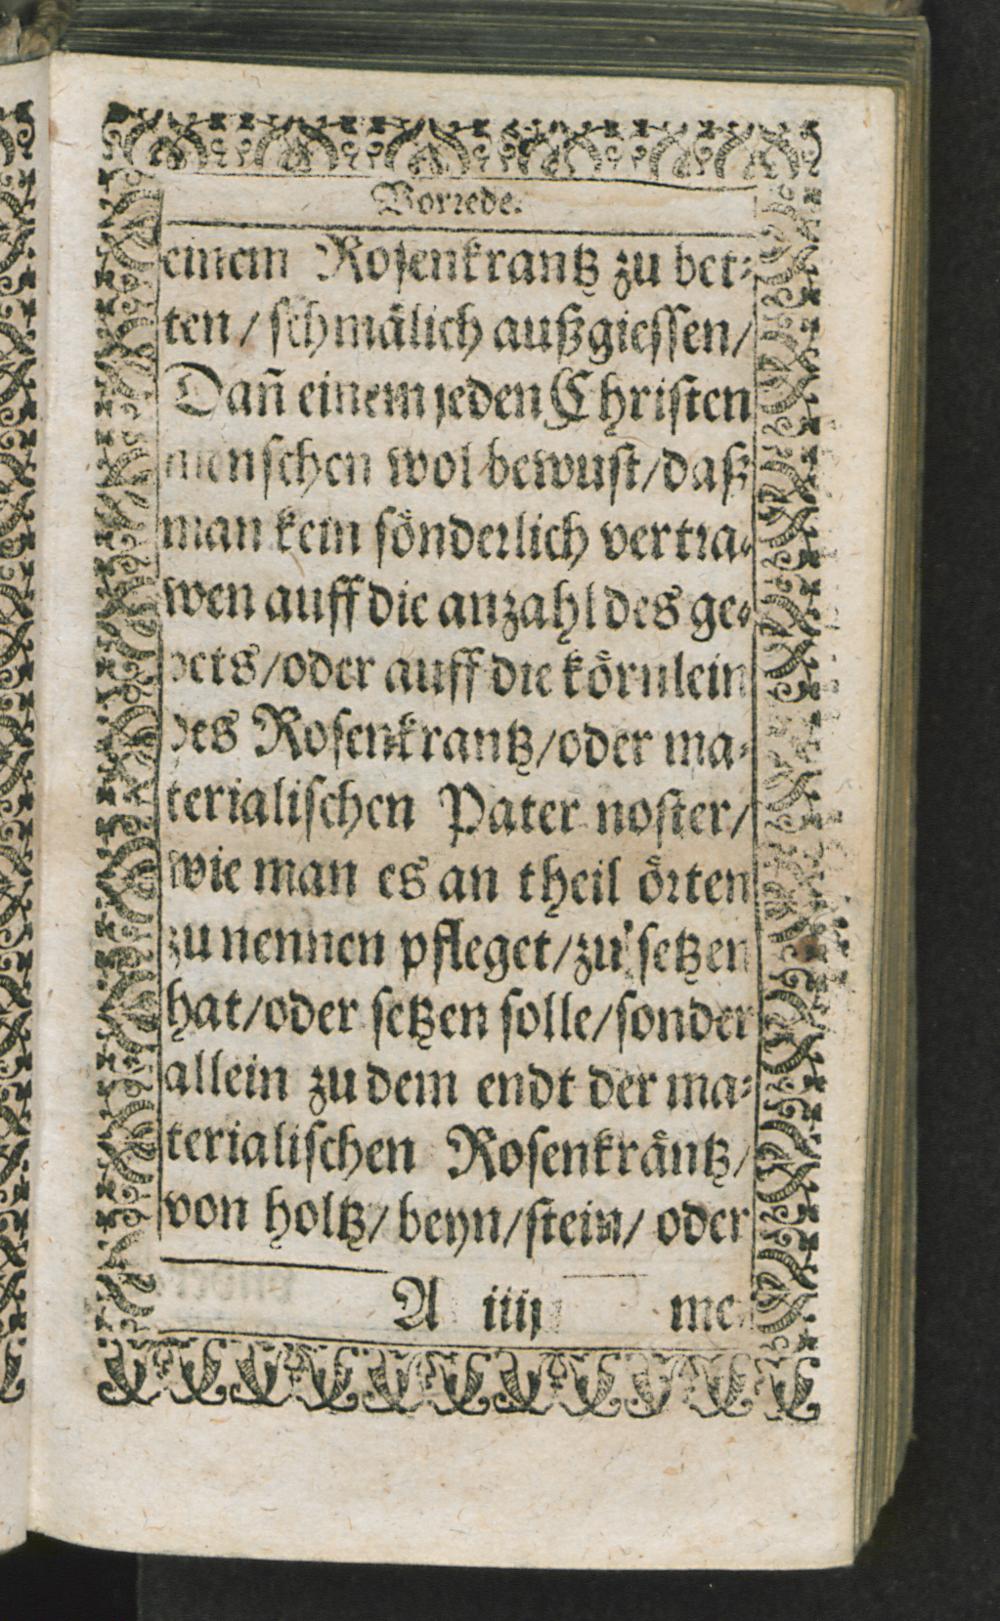 Vorrede.
einem Rosenkrantz zu bet-
ten / schmälich außgiessen /
Dañ einem jeden Christen
menschen wol bewust / daß
man kein sönderlich vertra-
wen auff die anzahl des ge-
bets / oder auff die körnlein
des Rosenkrantz / oder ma-
terialischen Pater noster /
wie man es an theil örten
zu nennen pfleget / zu setzen
hat / oder setzen solle / sonder
allein zu dem endt der ma-
terialischen Rosenkräntz /
von holtz / beyn / stein / oder
A iiij me-